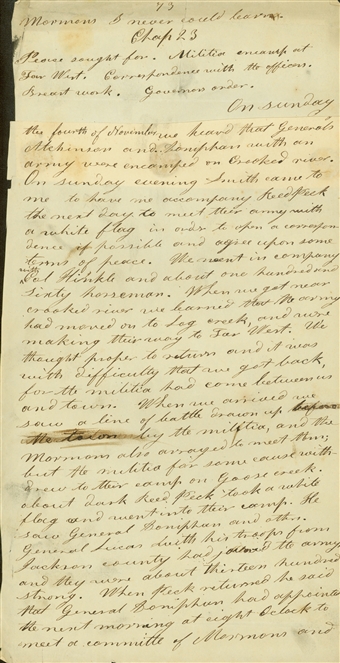 73
Mormons I never could learn.
Chap 23
Peace sought for. Militia encamp at
Far West. Correspondence with the officers.
Breast work. Governors order.
On sunday
the fourth of November we heard that Generals
Atchinson and Doniphan with an
army were encamped on Crooked river.
On sunday evening Smith came to
me to have me accompany Reed Peck
the next day to meet their army with
a white flag in order to open a correspon
dence if possible and agree upon some
terms of peace. We went in company
with
Col Hinkle and about one hundred and
Sixty horseman. When we got near
crooked river we learned that the army
had moved on to Log creek, and were
making their way to Far West. We
thought proper to return and it was
with difficulty that we got back,
for the militia had come between us
and town. When we arrived we
saw a line of battle drawn up before
the town by the militia, and the
Mormons also arraged to meet them;
but the militia for some cause with
drew to their camp on Goose creek.
About dark Reed Peck took a white
flag and went into their camp. He
saw General Doniphan and others.
General Lucas with his troops from
Jackson county had joined the army
and they were about thirteen hundred
strong. When Peck returned he said
that General Doniphan had appointed
the next morning at eight Oclock to
meet a committe of Mormons and